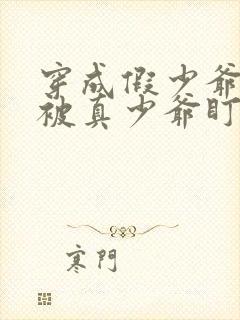 穿成假少爷
被真少爷盯
寒門